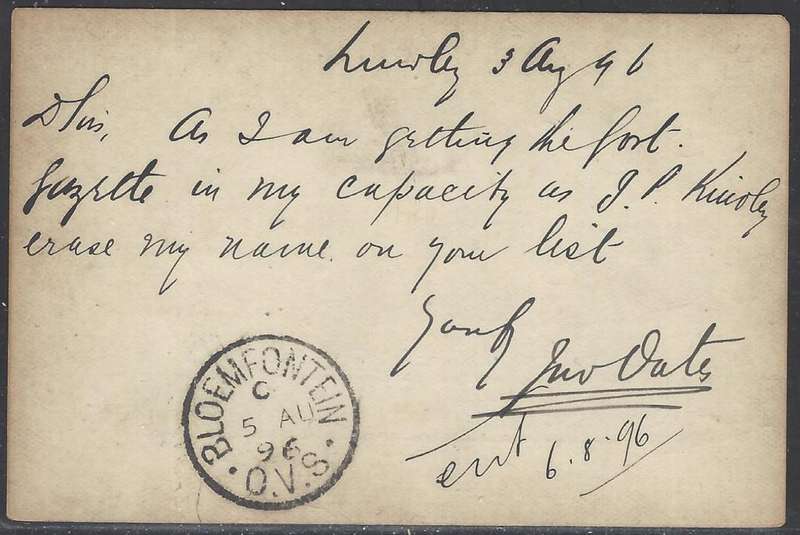 Lindley 3 Aug 96
D Sir, As I am getting the Govt.
Gazette in my capacity as J. P. Lindley
erase my name on your list
Yours
Jno Oates
BLOEMFONTEIN
C
5 AU
96
O.V.S.
6.8.96